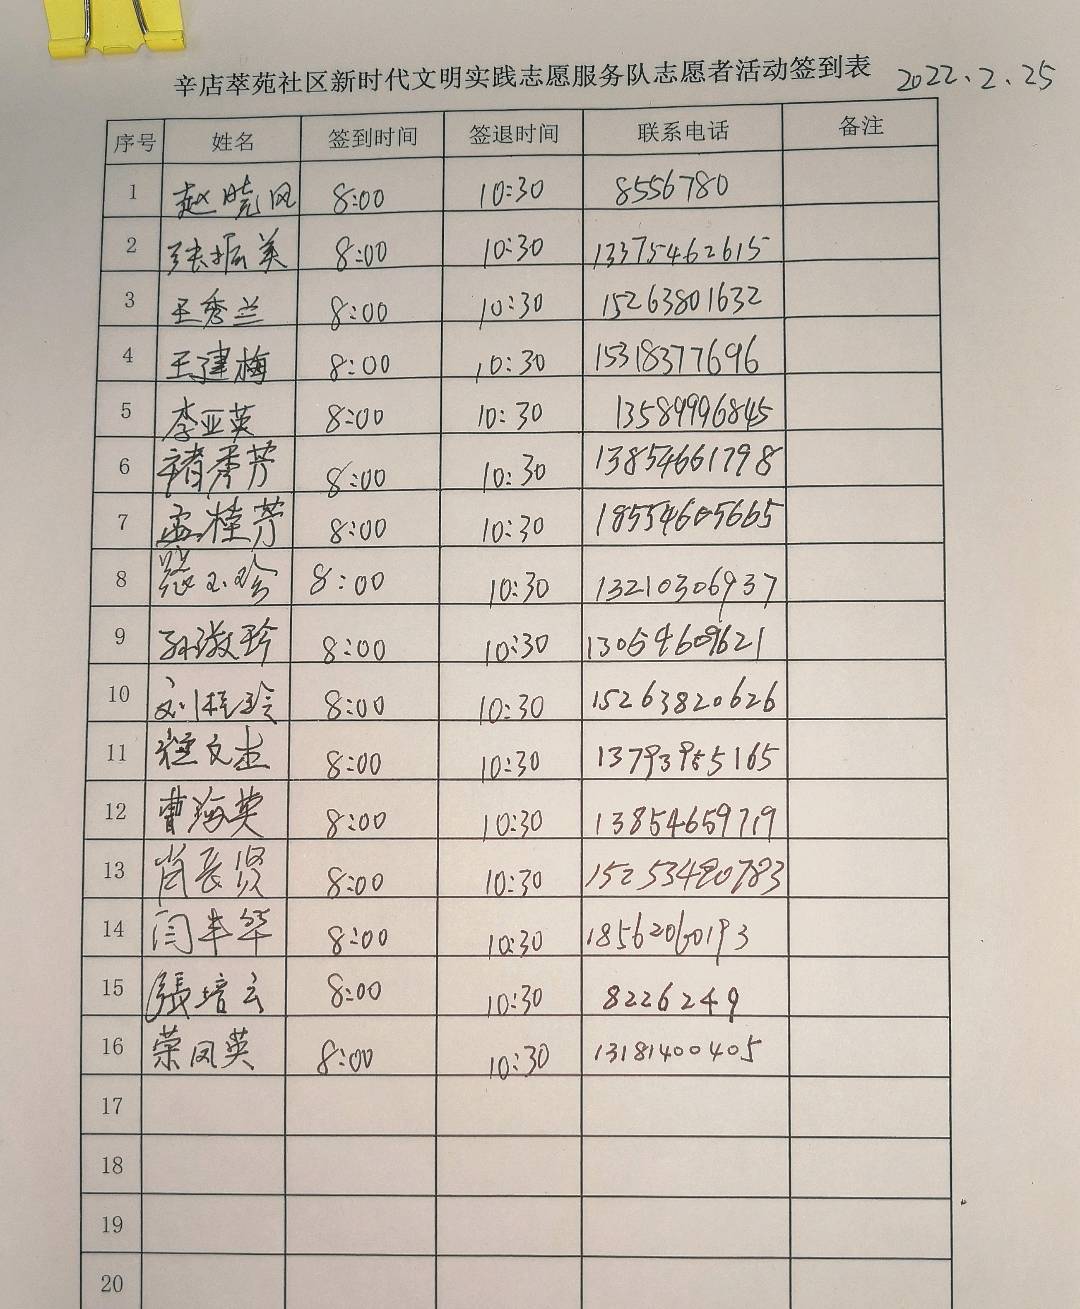 辛店萃苑社区新时代文明实践志愿服务队志愿者活动签到表 2022.2.25
序号 姓名 签到时间 签退时间 联系电话 备注
1 赵晓风 8:00 10:30 8556780
2 张振美 8:00 10:30 13375462615
3 王秀兰 8:00 10:30 15263801632
4 王建梅 8:00 10:30 15318377696
5 李亚英 8:00 10:30 13589996845
6 褚秀芳 8:00 10:30 13854661798
7 孟桂芳 8:00 10:30 18554605665
8 8:00 10:30 13210306937
9 孙淑珍 8:00 10:30 13054609621
10 刘桂玲 8:00 10:30 15263820626
11 程文杰 8:00 10:30
12 曹海英 8:00 10:30 13854659719
13 肖长贤 8:00 10:30
14 闫丰华 8:00 10:30 18562060193
15 張培云 8:00 10:30 8226249
16 荣凤英 8:00 10:30 13181400405
17
18
19
20